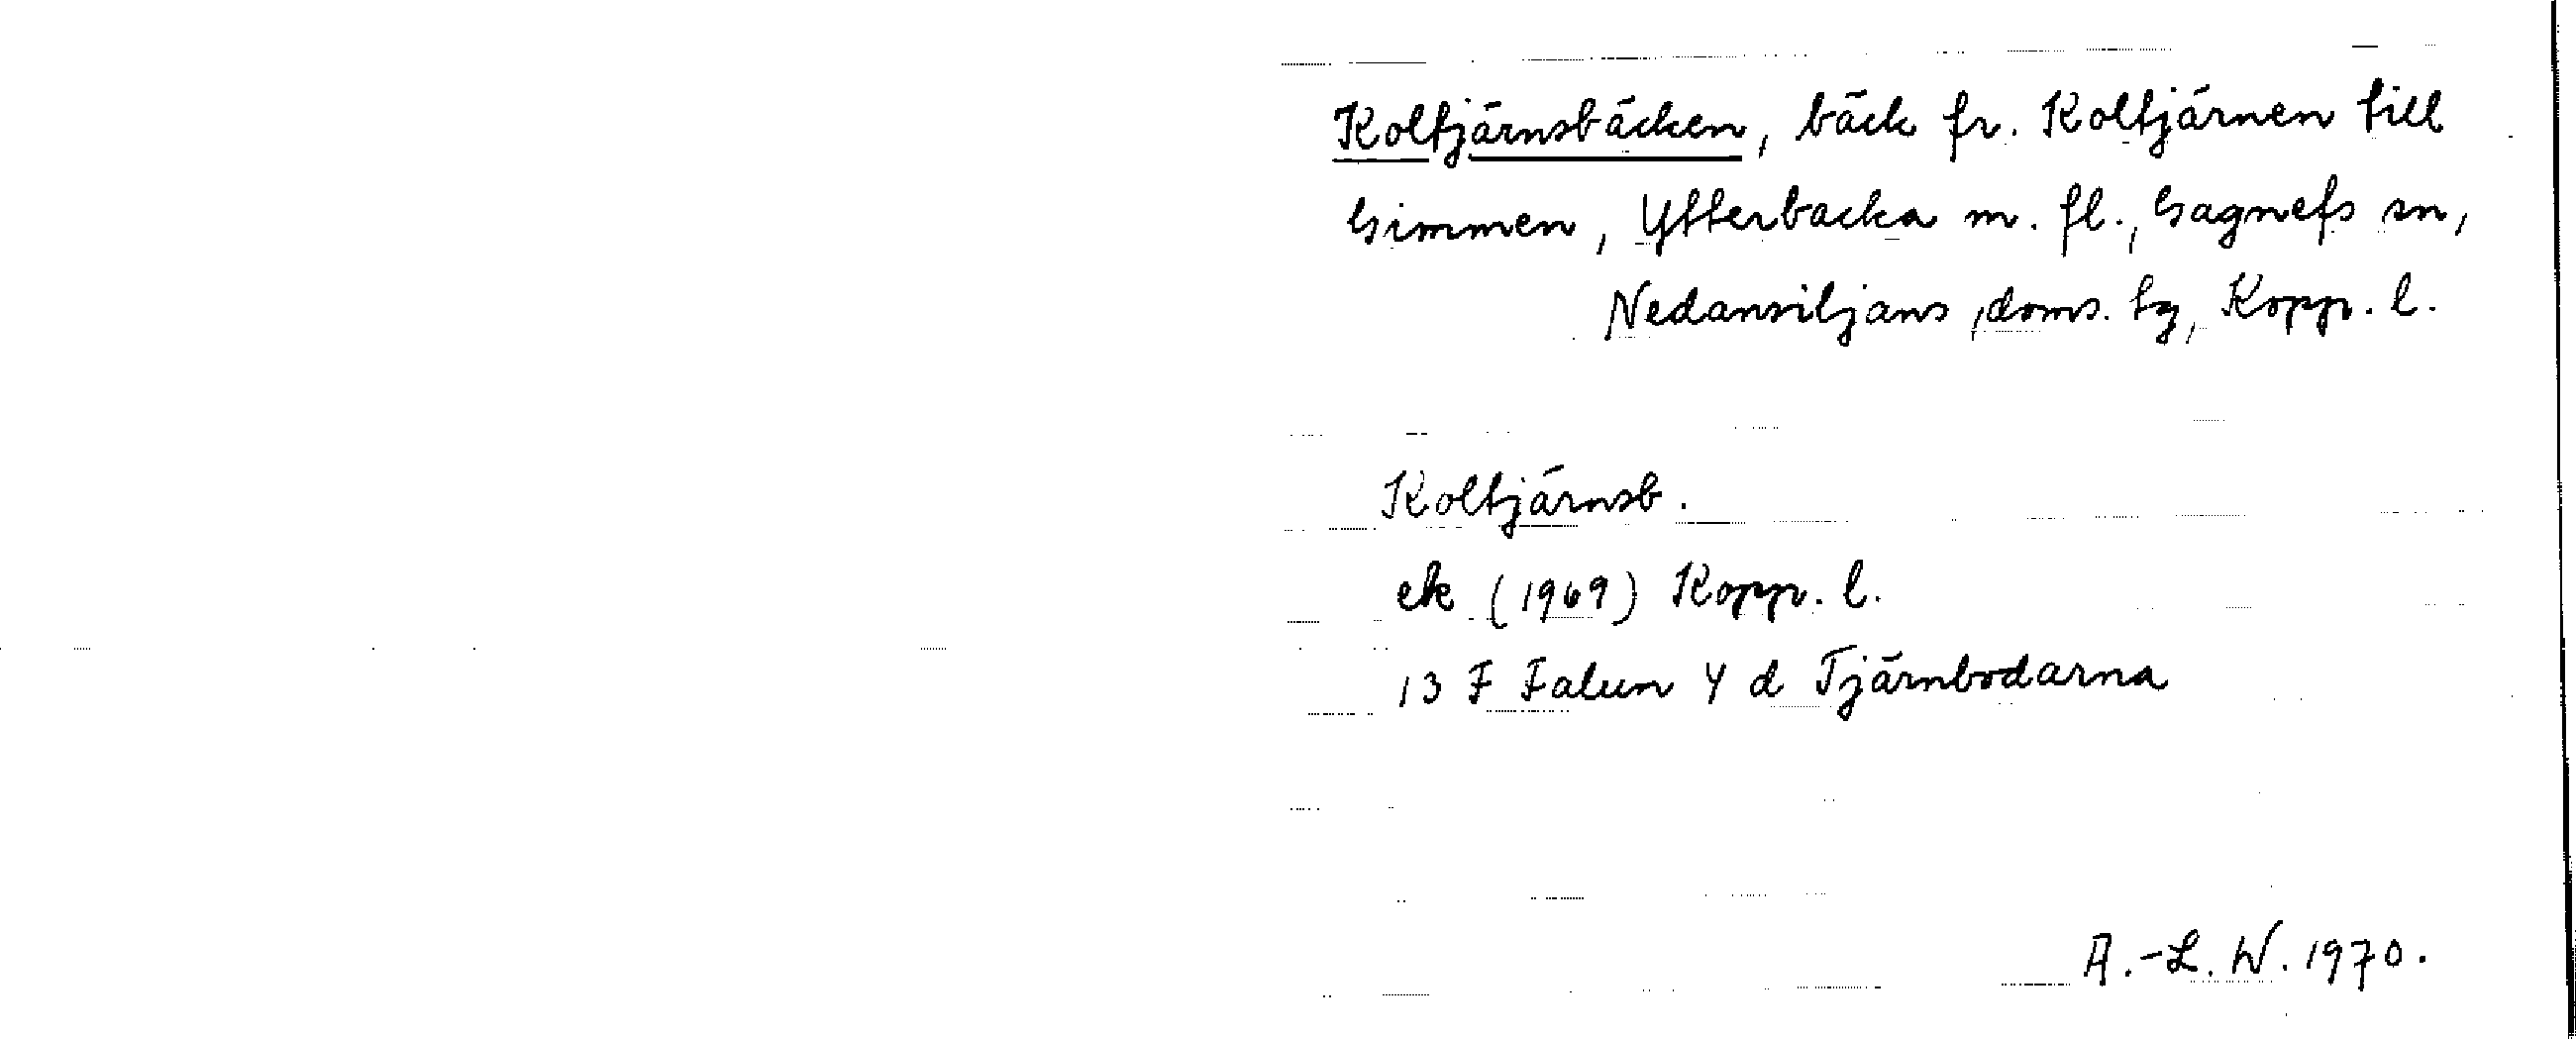 Koltjärnsbäcken, bäck fr. Koltjärnen till
Gimmen, Ytterbacka m. fl., Gagnefs sn,
Nedansiljans doms. tg, Kopp. l.
Koltjärnsb.
ek (1969) Kopp. l.
13 F Falun 4 d Tjärnbodarna
A.-L. W. 1970.